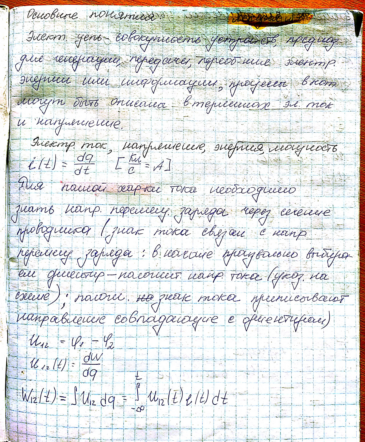 Основные понятия
Элект. цепь – совокупность устройств, предназ
для генерации, передачи, электр.
энергии или информации, процессы в кот.
могут быть описаны в терминах эл ток
и напряжение.
Электр. ток, напряжение, энергия, мощность
i(t) = dq/dt [Кл/с = А]
Для полной хар-ки тока необходимо
знать напр. перемещ. заряда через сечение
проводника (знак тока связан с напр
перемещ заряда: в начале выбира
ем ориентир – положит напр тока (указ. на
схеме); полож. знак тока приписывают
направлению совпадающие с ориентиром)
U₁₂ = φ₁ – φ₂
U₁₂(t) = dW/dq
W₁₂(t) = ∫U₁₂ dq = ∫_{-∞}^{t} U₁₂(t) i(t) dt